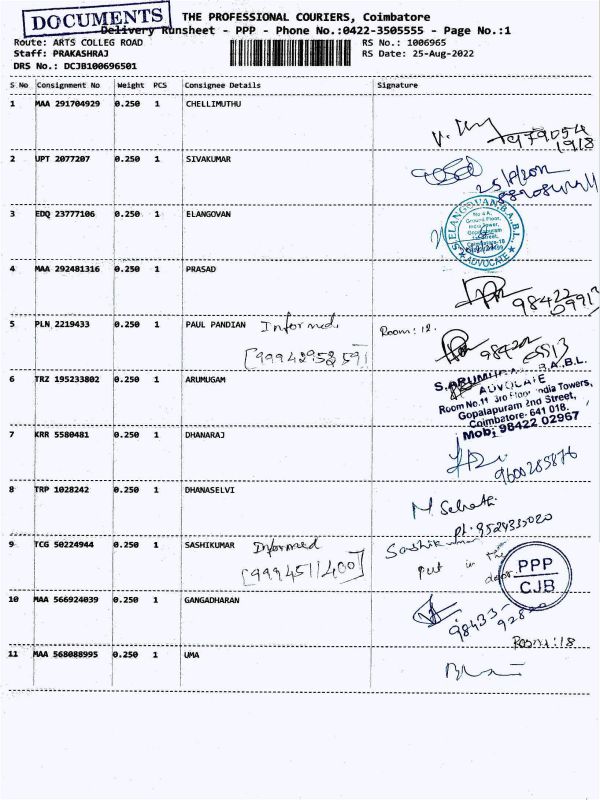 DOCUMENTS
THE PROFESSIONAL COURIERS, Coimbatore
Delivery Runsheet - PPP - Phone No.:0422-3505555 - Page No.:1
Route: ARTS COLLEG ROAD
RS No.: 1006965
Staff: PRAKASHRAJ
RS Date: 25-Aug-2022
DRS No.: DCJB100696501
S No Consignment No Weight PCS Consignee Details Signature
1 MAA 291704929 0.250 1 CHELLIMUTHU
979054
1918
2 UPT 2077207 0.250 1 SIVAKUMAR
25/8/2022
3 EDQ 23777106 0.250 1 ELANGOVAN
S.ELANGOVAN,B.A.,B.L.
Ground Floor,
India Tower,
Gopalapuram
2nd Street,
Coimbatore-18
ADVOCATE
4 MAA 292481316 0.250 1 PRASAD
98422
09913
5 PLN 2219433 0.250 1 PAUL PANDIAN Informed Room: 12.
[9994295859]
98422
6 TRZ 195233802 0.250 1 ARUMUGAM
S.ARUMUGAM, B.A.,B.L.
ADVOCATE
Room No.11 3rd Floor India Towers,
Gopalapuram 2nd Street,
Coimbatore- 641 018.
Mob; 98422 02967
7 KRR 5580481 0.250 1 DHANARAJ
9600285876
8 TRP 1028242 0.250 1 DHANASELVI
Ph: 9524335020
9 TCG 50224944 0.250 1 SASHIKUMAR Informed
[9994511400]
Sashikumar
put in the
door
PPP
CJB
10 MAA 566924039 0.250 1 GANGADHARAN
98433-
Room: 18
11 MAA 568088995 0.250 1 UMA